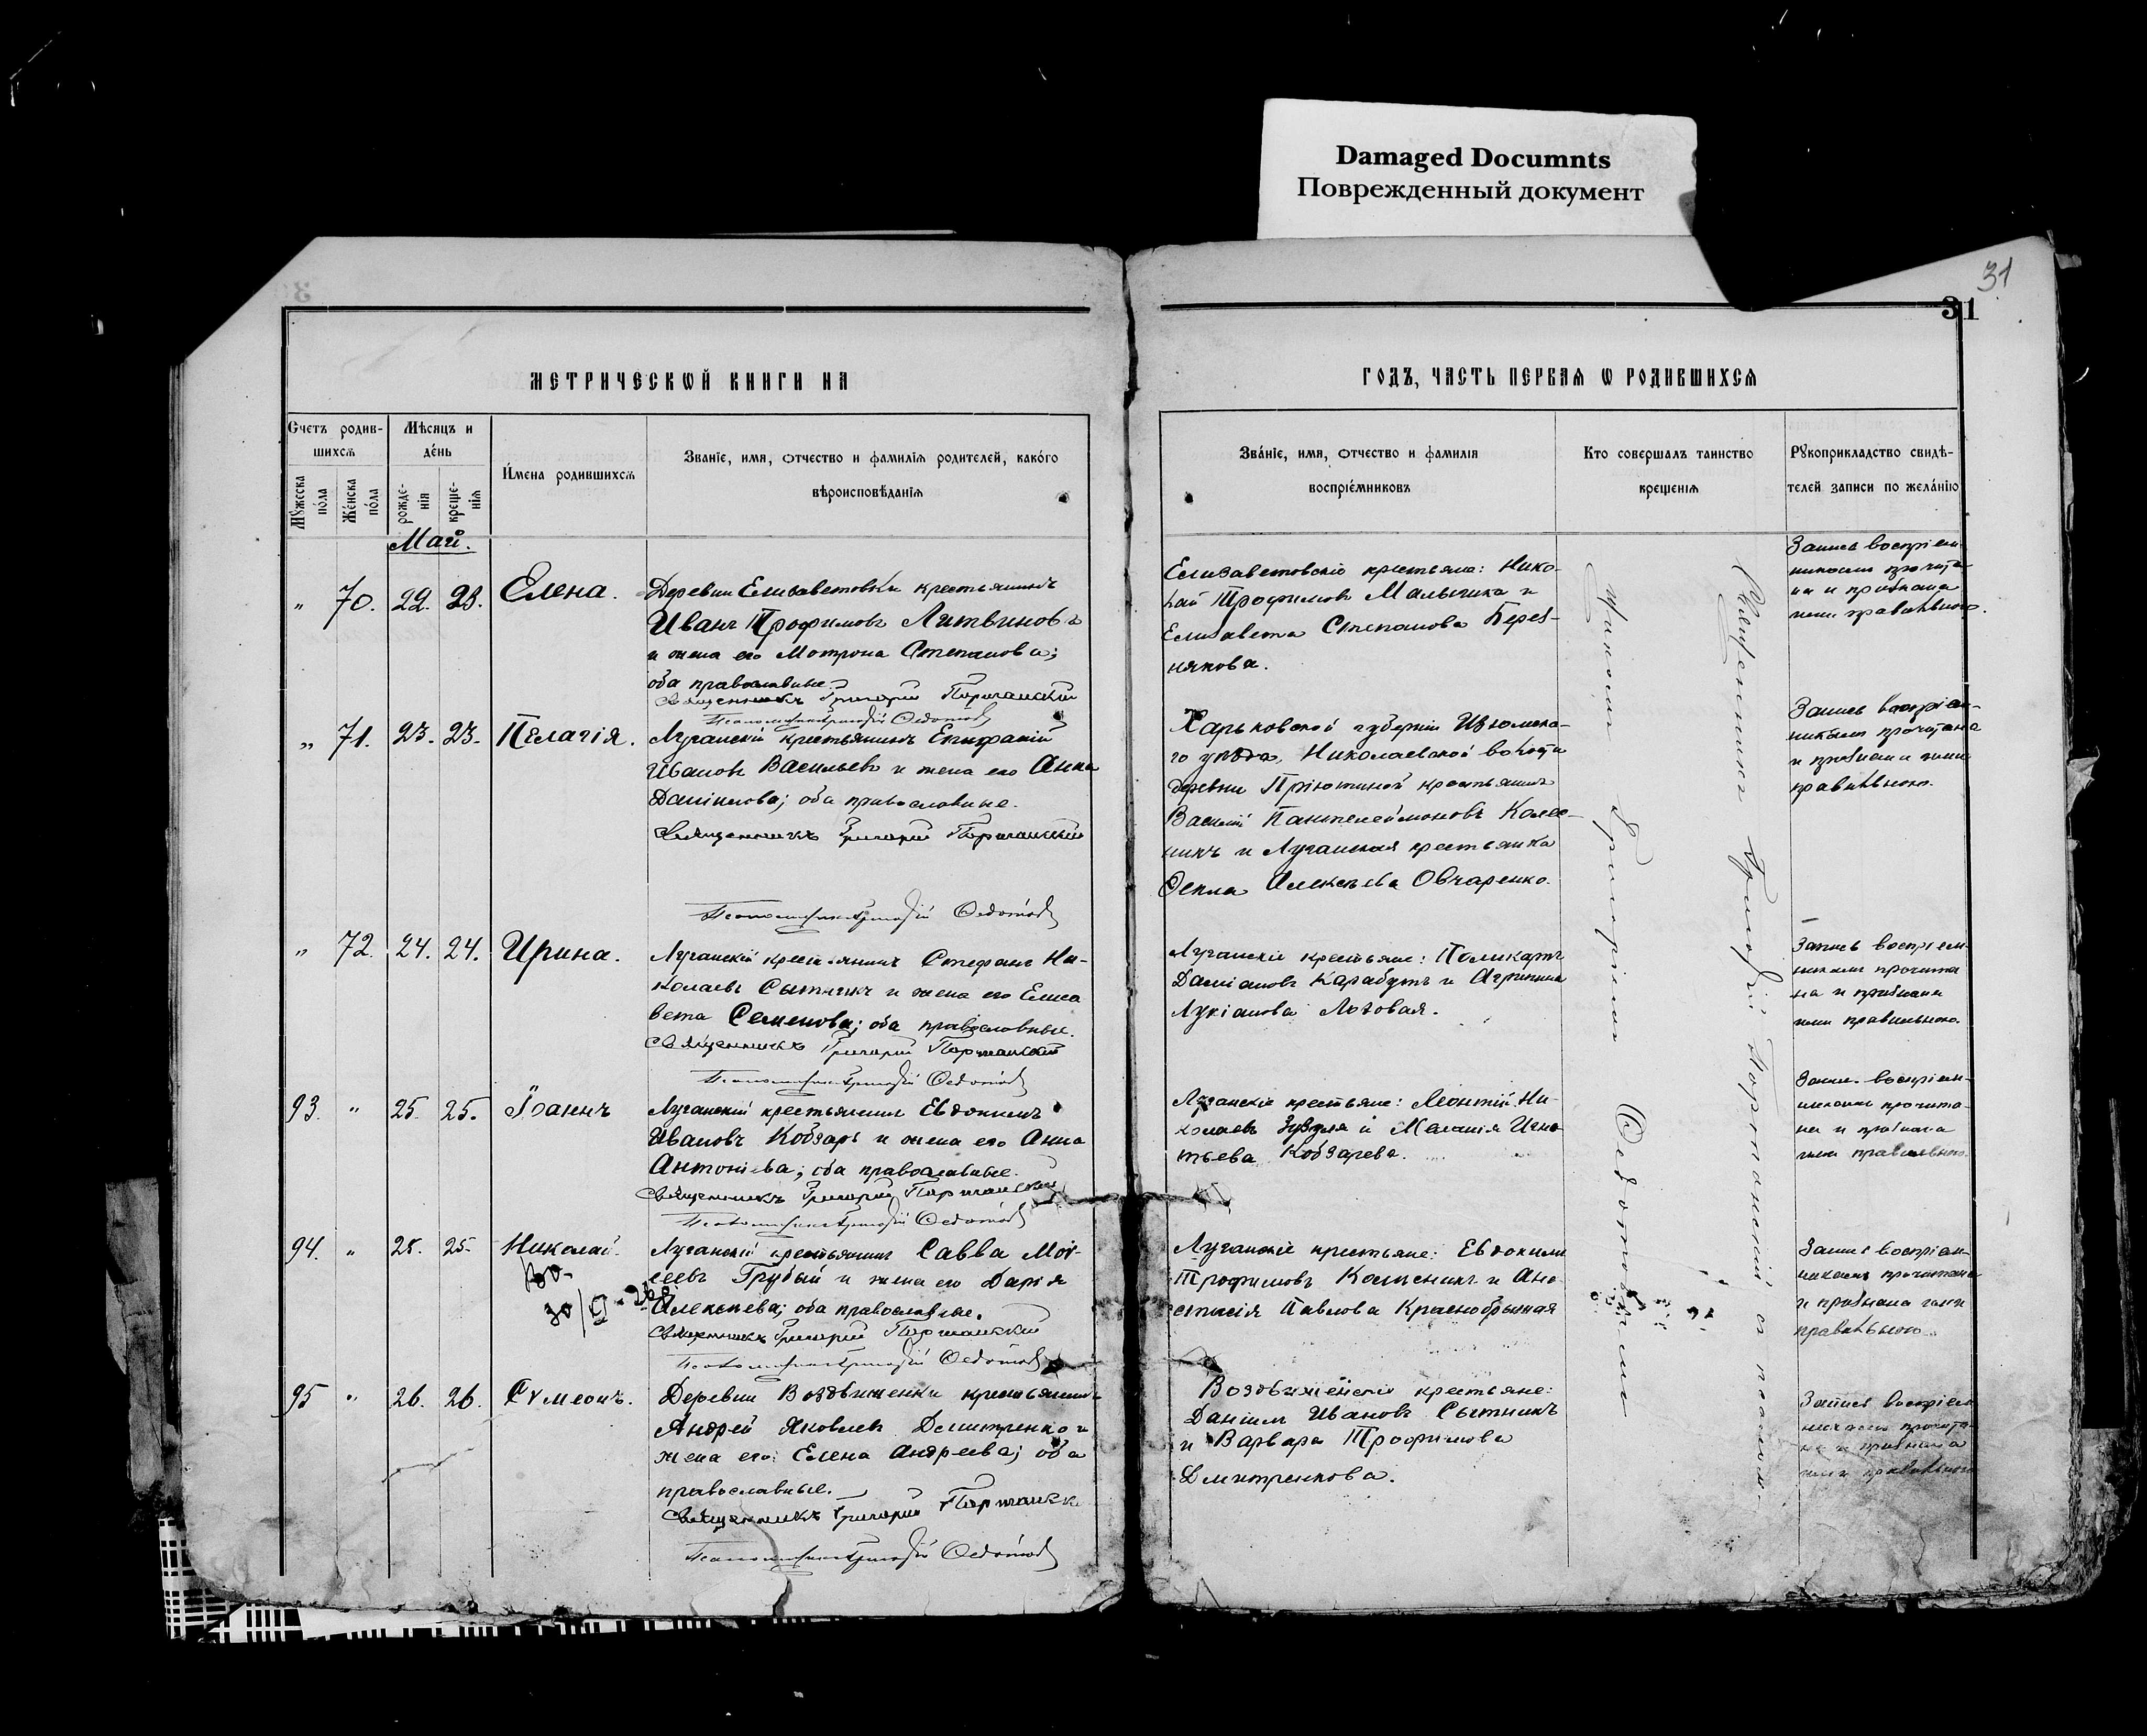 Damaged Documnts
Поврежденный документ
31
31
МЕТРИЧЕСКѠЙ КНИГИ НА
ГОДЪ, ЧАСТЬ ПЕРВАѦ Ѡ РОДИВШИХСѦ
Счетъ родив-
шихсѧ
Мѣсяцъ и
де́нь
Мꙋжеска
по́ла
Же́нска
по́ла
рожде-
нія
креще-
нїѧ
И́мена родившихсѧ
Званїе, имя, ѻтчество и фамилїѧ родителей, како́го
вѣроисповѣданїѧ
Зва́нїе, имя, ѻтчество и фамилїѧ
воспрїе́мниковъ
Кто соверша́лъ таинство
крещенїѧ
Рꙋкоприкладство свидѣ-
телей записи по жела́нїю
Май.
„ 70. 22. 23. Елена.
Деревни Елизаветовки крестьянинъ
Иванъ Трофимовъ Литвиновъ
и жена его Мотрона Степанова;
оба православные.
Священникъ Григорій Порткanский
Псаломщикъ Григорій Федотов
Елизаветовскіе крестьяне: Нико-
лай Трофимовъ Малычка и
Елизавета Степанова Берез-
някова.
Запись воспріем-
никами прочита-
на и признана
ими правильною.
„ 71. 23. 23. Пелагія.
Луганскій крестьянинъ Епифаній
Ивановъ Васильевъ и жена его Анна
Даніилова; оба православные.
Священникъ Григорій
Псаломщикъ Григорій Федотов
Харьковской губерніи Изюмска-
го уѣзда, Николаевской волости
деревни Пріютиной крестьянинъ
Василій Пантелеймоновъ Колес-
никъ и Луганская крестьянка
Фекла Алексѣева Овчаренко.
Запись воспріем-
никами прочитана
и признана ими
правильною.
„ 72. 24. 24. Ирина.
Луганскій крестьянинъ Стефанъ Ни-
колаевъ Сытникъ и жена его Елиса
вета Семенова; оба православные.
Священникъ Григорій
Псаломщикъ Григорій Федотов
Луганскіе крестьяне: Поликарпъ
Даміановъ Карабутъ и Агрипина
Лукіанова Лозовая.
Запись воспріем-
никами прочита
на и признана
ими правильною.
93. „ 25. 25. Іоаннъ
Луганскій крестьянинъ Евдокимъ
Ивановъ Кобзарь и жена его Анна
Антоніева; оба православные.
Священникъ Григорій
Псаломщикъ Григорій Федотов
Луганскіе крестьяне: Леонтій Ни-
колаевъ Зузуля и Меланія Игна
тьева Кобзарева.
Запись воспріем-
никами прочита-
на и признана
ими правильною.
94. „ 25. 25. Николай.
Луганскій крестьянинъ Савва Мои-
сеевъ Грубый и жена его Дарія
Алексѣева; оба православные.
Священникъ Григорій
Псаломщикъ Григорій Федотов
Луганскіе крестьяне: Евдокимъ
Трофимовъ Калсеникъ и Ана
стасія Павлова Краснобрыжая
Запись воспріем-
никами прочитана
и признана ими
правильною.
95 „ 26. 26. Сѵмеонъ.
Деревни Воздвиженки крестьянинъ
Андрей Яковлевъ Дмитренко и
жена его: Елена Андреева; оба
православные.
Священникъ Григорій
Псаломщикъ Григорій Федотов
Воздвиженскіе крестьяне:
Даніилъ Ивановъ Сытникъ
и Варвара Трофимова
Дмитренкова.
Запись воспріем
никами прочита-
на и признана
ими правильною
Священникъ Григорій съ псалом-
щикомъ Григоріемъ Федотовымъ